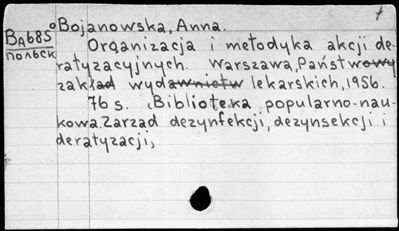 Bojanowska, Anna.
Ba685
польск
Organizacja i metodyka akcji de-
ratyzacyjnych. Warszawa, Państwowy
zakład wydawnictw lekarskich, 1956.
76 s. (Biblioteka popularno-nau-
kowa. Zarząd dezynfekcji, dezynsekcji i
deratyzacji,